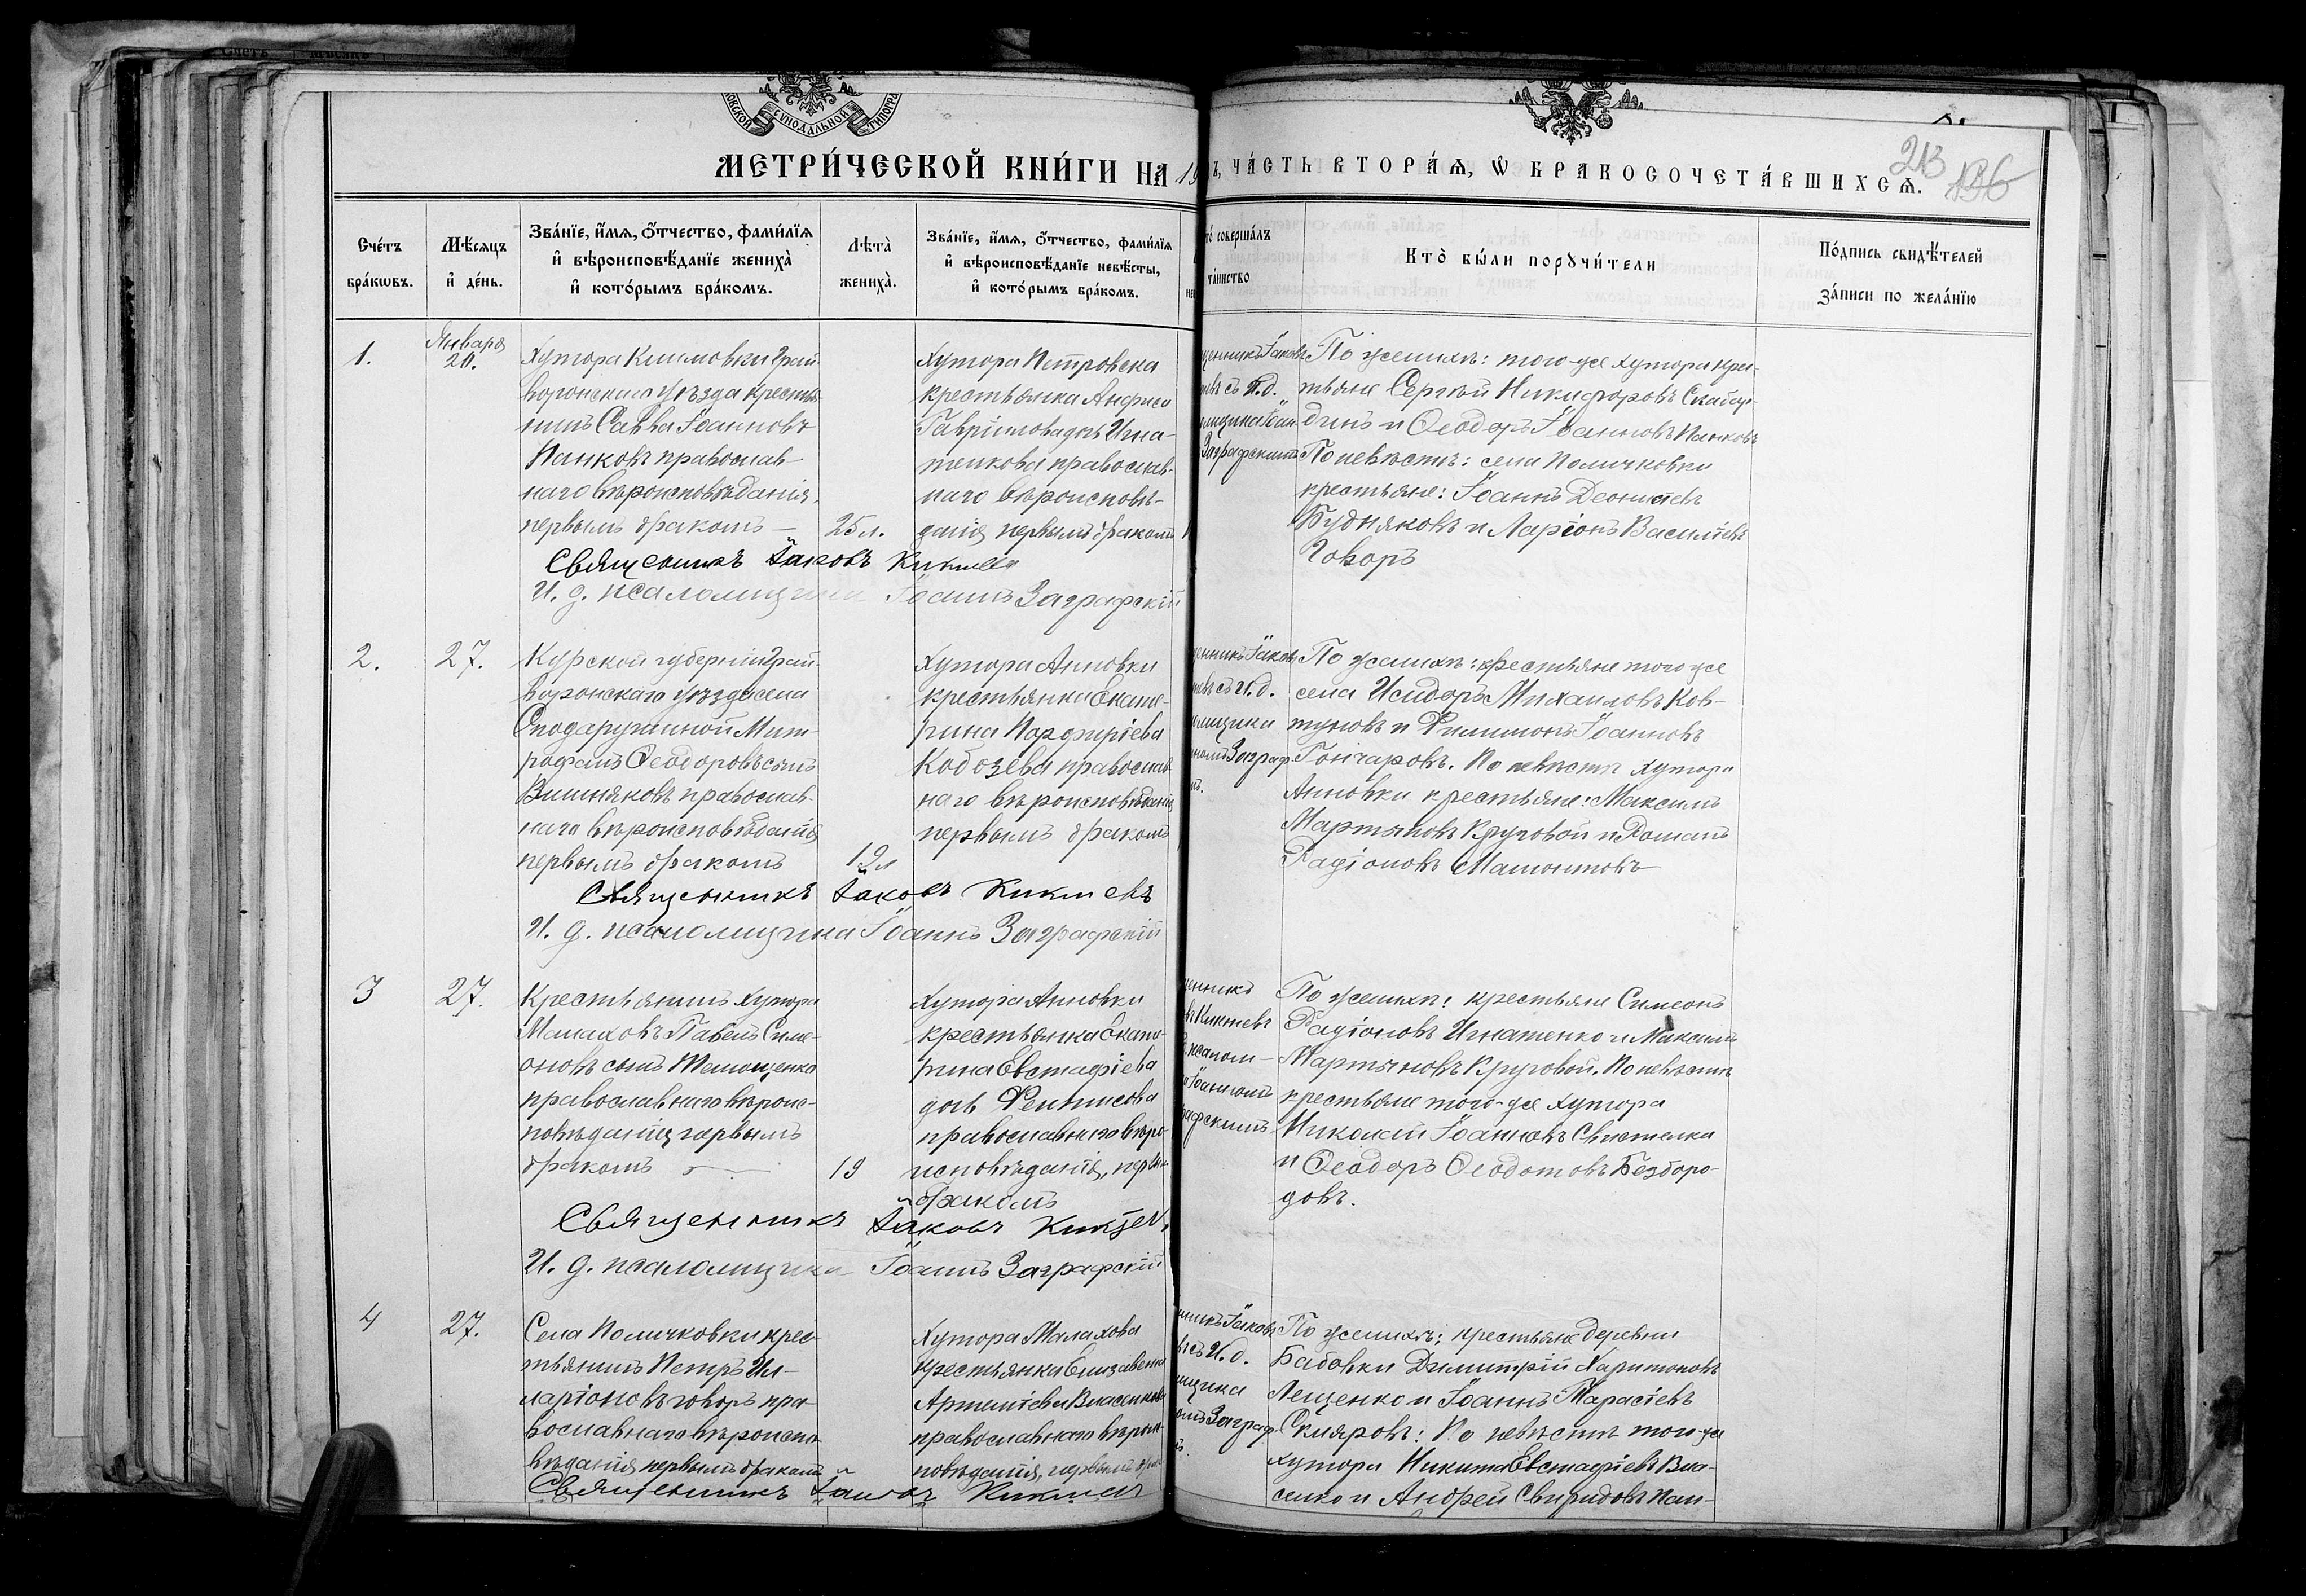 СѴНОДАЛЬНОЙ
МЕТРИ́ЧЕСКОЙ КНИ́ГИ НА 19
Ъ, ЧА́СТЬ ВТОРА́Ѧ, Ѡ БРАКОСОЧЕТА́ВШИХСѦ.
213
196
Сче́тъ
бра́кѡвъ.
Мѣ́сѧцъ
и҆ де́нь.
Зва́нїе, и҆́мѧ, ѻ҆́тчество, фами́лїѧ
и҆ вѣроисповѣ́данїе жениха̀
и҆ кото́рымъ бра́комъ.
Лѣ́та
жениха̀.
Зва́нїе, и҆́мѧ, ѻ҆́тчество, фами́лїѧ
и҆ вѣроисповѣ́данїе невѣ́сты,
и҆ кото́рымъ бра́комъ.
то̀ соверша́лъ
та́инство
Кто̀ бы́ли порꙋчи́тели
По́дпись свидѣ́телей
за́писи по жела́нїю
1.
Января
20.
Хутора Климовки Грай-
воронскаго уѣзда крестья-
нинъ Савва Іоанновъ
Панковъ православ-
наго вѣроисповѣданія,
первымъ бракомъ
25 л.
Хутора Петровска
крестьянка Анфиса
Гавріилова дочь Игна-
тенкова православ-
наго вѣроисповѣ-
данія первымъ бракомъ
щенникъ Іаковъ
евъ съ И. д.
Заграфскимъ
По женихѣ: того-же хутора крес-
тьяне Сергѣй Никифоровъ
и Ѳеодоръ Іоанновъ Панковъ
По невѣстѣ: села Поличковки
крестьяне: Іоаннъ Деонисіевъ
Будняковъ и Ларіонъ Василіевъ
Говоръ
Священникъ Іаковъ Кикшевъ
И. д. псаломщика Іоаннъ Заграфскій
2.
27.
Курской губерніи Грай-
воронскаго уѣзда села
Сподарушиной Мит-
рофанъ Ѳеодоровъ сынъ
Вишняковъ православ-
наго вѣроисповѣданія
первымъ бракомъ
19 л
Хутора Анновки
крестьянка Екате-
рина Порфиріева
Кобозева православ-
наго вѣроисповѣданія
первымъ бракомъ
щенникъ Іаковъ
евъ съ И. д.
омщика
номъ Заграф
По женихѣ: крестьяне того же
села Исидоръ Михаиловъ Ков-
туновъ и Филимонъ Іоанновъ
Гончаровъ. По невѣстѣ хутора
Анновки крестьяне: Максимъ
Мартыновъ Круговой и Романъ
Радіоновъ Мамонтовъ
Священникъ Іаковъ Кикшевъ
И. д. псаломщика Іоаннъ Заграфскій
3
27.
Крестьянинъ хутора
Малаховъ Павелъ Симе-
оновъ сынъ
православнаго вѣроис-
повѣданія первымъ
бракомъ
19
Хутора Анновки
крестьянка Екате-
рина Евстафіева
дочь
православнаго вѣро-
исповѣданія, первымъ
бракомъ
щенникъ
въ Кикшевъ
псалом-
Іоанномъ
рафскимъ
По женихѣ: крестьяне Симеонъ
Радіоновъ Игнатенко и Максимъ
Мартыновъ Круговой. По невѣстѣ
крестьяне того-же хутора
Николай Іоанновъ Свистелка
и Ѳеодоръ Ѳеодотовъ Безборо-
довъ.
Священникъ Іаковъ Кикшевъ
И. д. псаломщика Іоаннъ Заграфскій
4
27.
Села Поличковки крес-
тьянинъ Петръ Ил-
ларіоновъ Говоръ пра-
вославнаго вѣроиспо-
вѣданія первымъ бракомъ
Хутора Малахова
крестьянка Елизавета
Артеміева Власенкова
православнаго вѣроис-
повѣданія, первымъ бра-
никъ Іаковъ
въ съ И. д.
мщика
омъ Заграф
По женихѣ: крестьяне деревни
Бабовки Димитрій Харитоновъ
Лещенко и Іоаннъ Тарасіевъ
Скляровъ: По невѣстѣ того-же
хутора Никита Евстафіевъ Вла-
сенко и Андрей Свиридовъ Пан-
Священникъ Іаковъ Кикшевъ